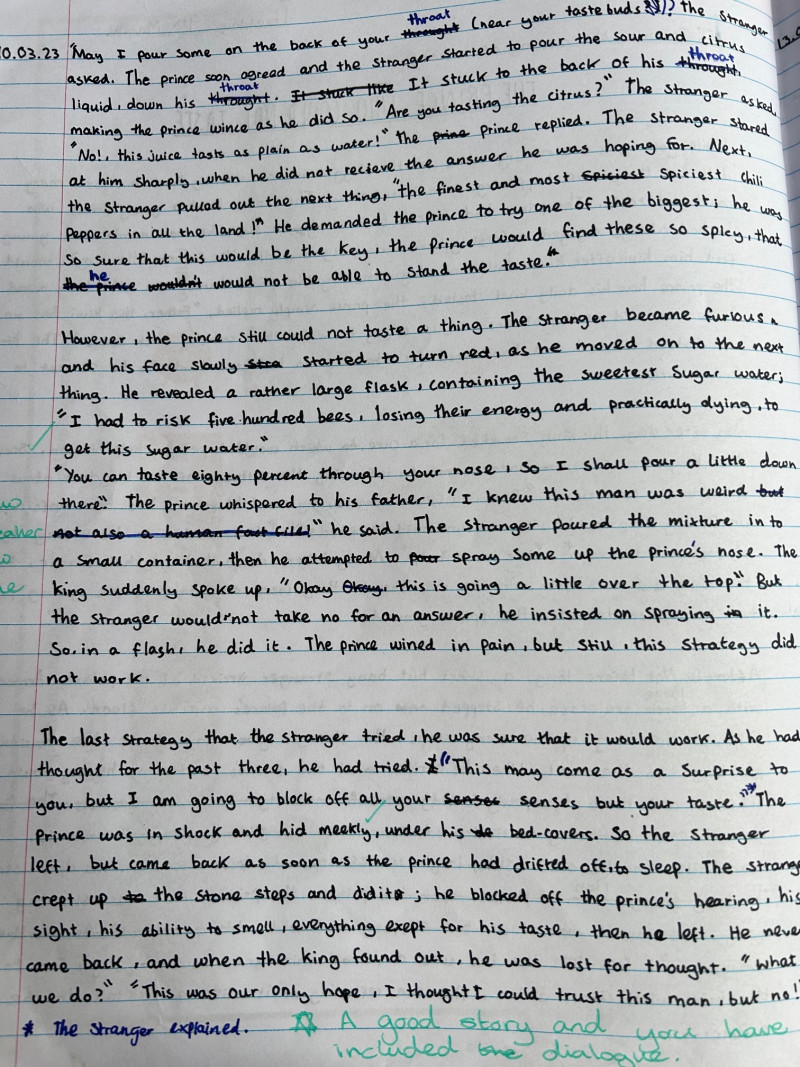 throat
10.03.23 "May I pour some on the back of your throught (near your taste buds)? The Stranger
asked. The prince soon agreed and the stranger started to pour the sour and citrus
throat
throat
liquid, down his throught. It stuck like It stuck to the back of his throught,
making the prince wince as he did so. "Are you tasting the citrus?" The stranger asked.
"No!, this juice tasts as plain as water!" The prine prince replied. The stranger stared
at him sharply, when he did not recieve the answer he was hoping for. Next,
the stranger pulled out the next thing, "the finest and most spiciest spiciest chili
peppers in all the land!" He demanded the prince to try one of the biggest; he was
so sure that this would be the key, the prince would find these so spicy, that
he
the prince wouldn't would not be able to stand the taste."
However, the prince still could not taste a thing. The stranger became furious,
and his face slowly sta started to turn red, as he moved on to the next
thing. He revealed a rather large flask, containing the sweetest sugar water;
"I had to risk five hundred bees, losing their energy and practically dying, to
get this sugar water."
"You can taste eighty percent through your nose, so I shall pour a little down
there". The prince whispered to his father, "I knew this man was weird but
not also a human !" he said. The stranger poured the mixture in to
a small container, then he attempted to pour spray some up the prince's nose. The
king suddenly spoke up, "Okay Okay, this is going a little over the top". But
the stranger would not take no for an answer, he insisted on spraying in it.
So, in a flash, he did it. The prince wined in pain, but still, this strategy did
not work.
The last strategy that the stranger tried, he was sure that it would work. As he had
thought for the past three, he had tried. * "This may come as a surprise to
you, but I am going to block off all your senses senses but your taste." The
prince was in shock and hid meekly, under his bed-covers. So the stranger
left, but came back as soon as the prince had drifted off, to sleep. The strange
crept up to the stone steps and did it; he blocked off the prince's hearing, his
sight, his ability to smell, everything exept for his taste, then he left. He neve
came back, and when the king found out, he was lost for thought. "What
we do?" "This was our only hope, I thought I could trust this man, but no!
* The stranger explained.
A good story and you have
included the dialogue.